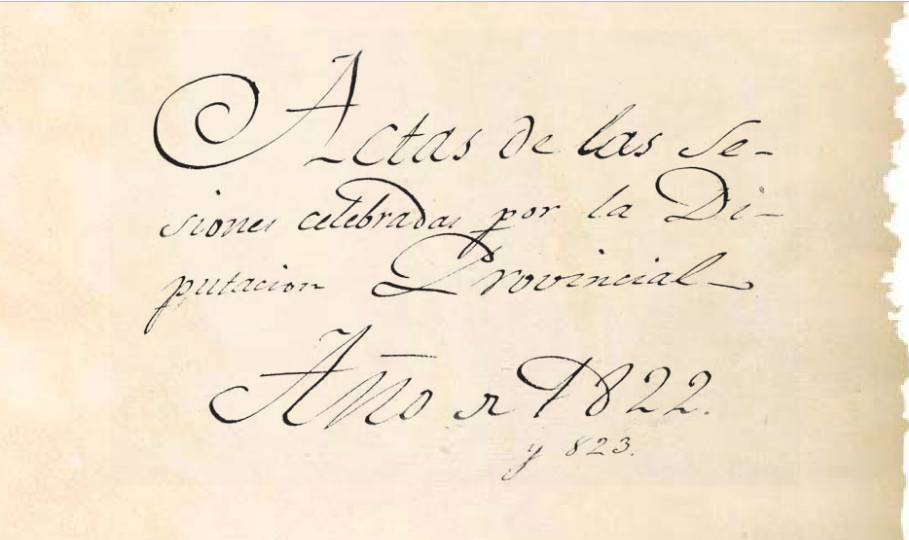 Actas de las Se-
siones celebradas por la Di-
putacion Provincial
Año de 1822.
y 823.